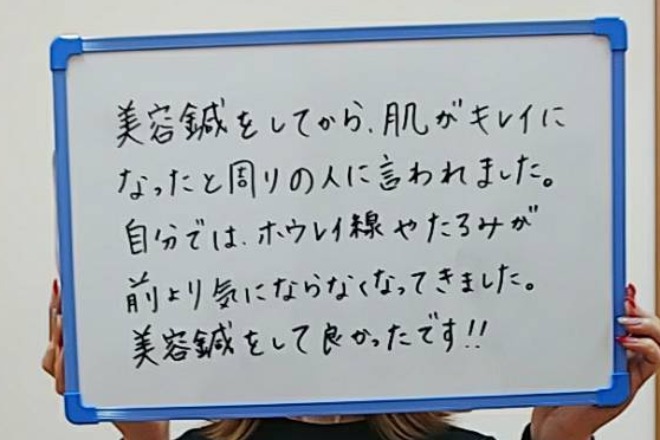 美容鍼をしてから、肌がキレイに
なったと周りの人に言われました。
自分では、ホウレイ線やたるみが
前より気にならなくなってきました。
美容鍼をして良かったです!!